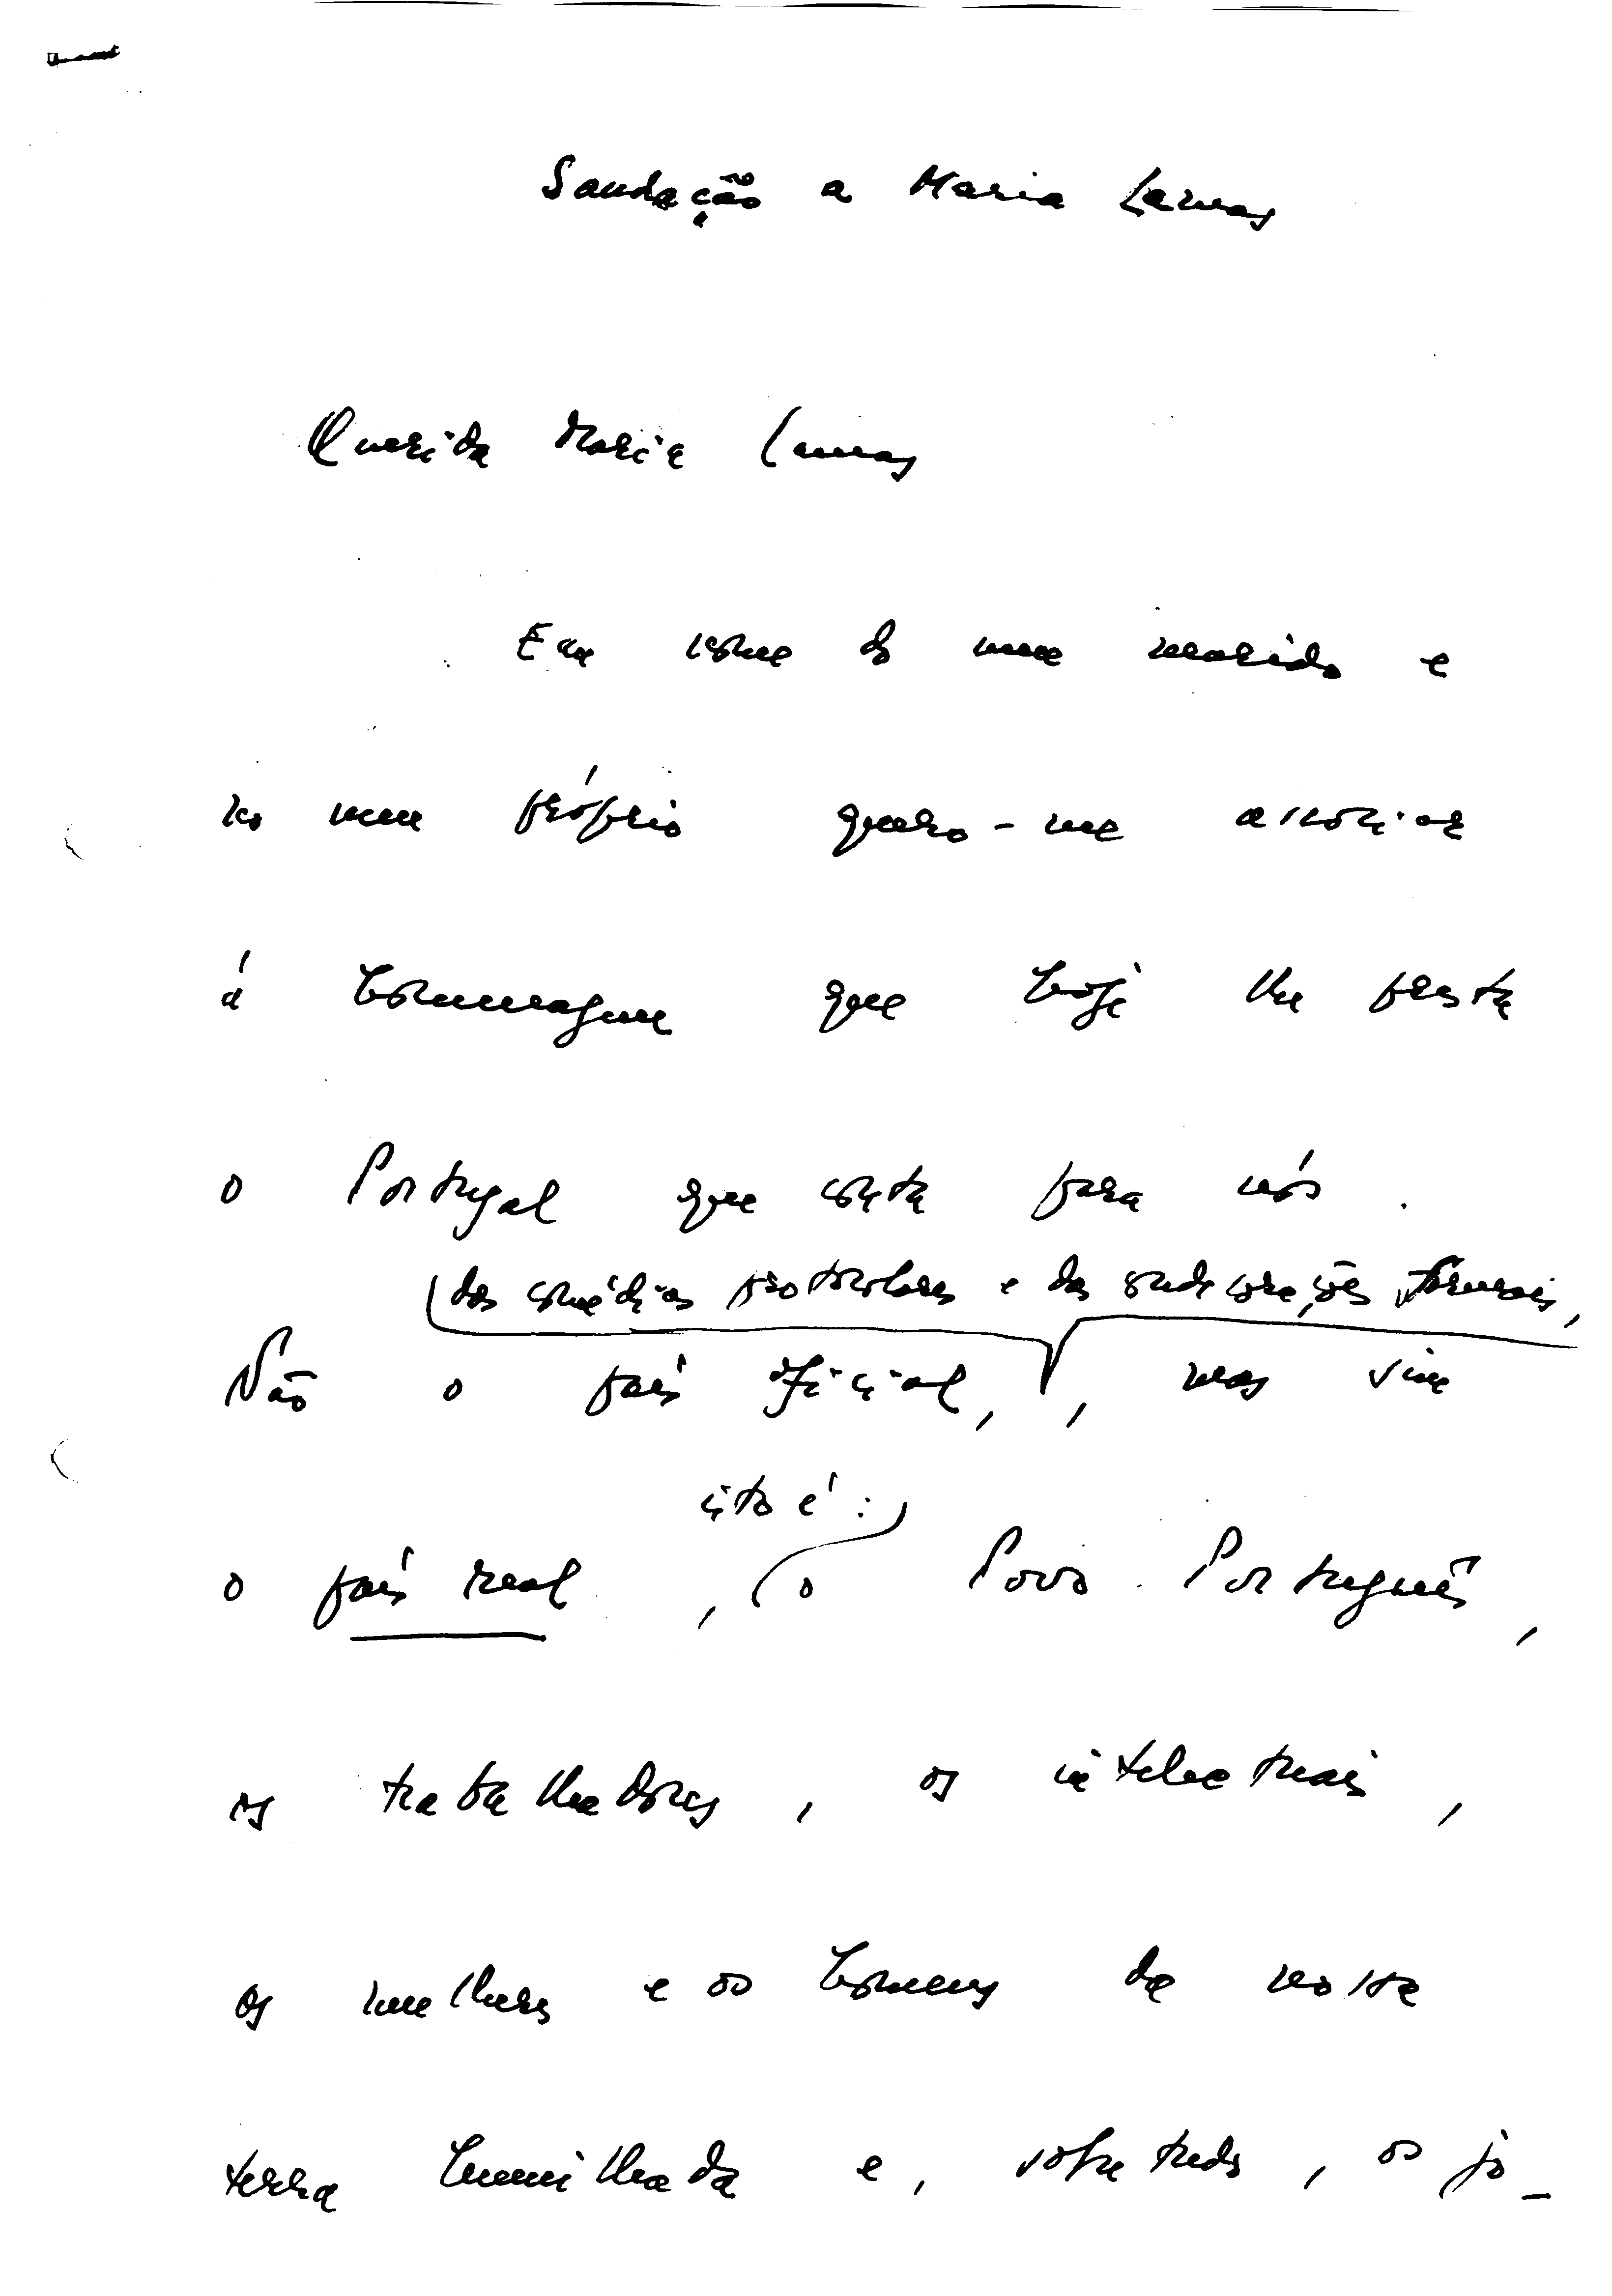 Saudação a Maria Lamas
Querida Maria Lamas
Em nome do meu marido e
no meu próprio quero-me associar
á homenagem que hoje lhe presta
o Portugal que conta para nós.
das comédias protocolares e das condecorações formais,
Não o país oficial, , mas sim
isto é:
o país real, o Povo Português,
os trabalhadores, os intelectuais,
as mulheres e os homens da nossa
terra humilhada e, sobretudo, os jo-